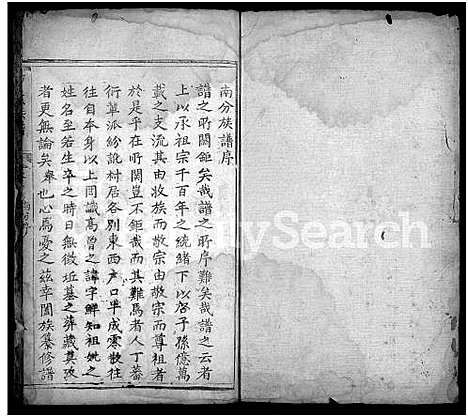 南分族譜序
譜之所關鉅矣哉譜之所序難矣哉譜之云者
上以承祖宗千百年之統緒下以啓子孫億萬
載之支流其由收族而敬宗由敬宗而尊祖者
於是乎在所關豈不鉅哉而其難焉者人丁蕃
衍草派紛訛村居各別東西户口半成零散往
往自本身以上罔識高曾之諱字鮮知祖妣之
姓名至若生卒之時日無徵坵墓之葬藏莫攷
者更無論矣舉也心焉憂之茲幸闔族纂修譜
FamilySearch